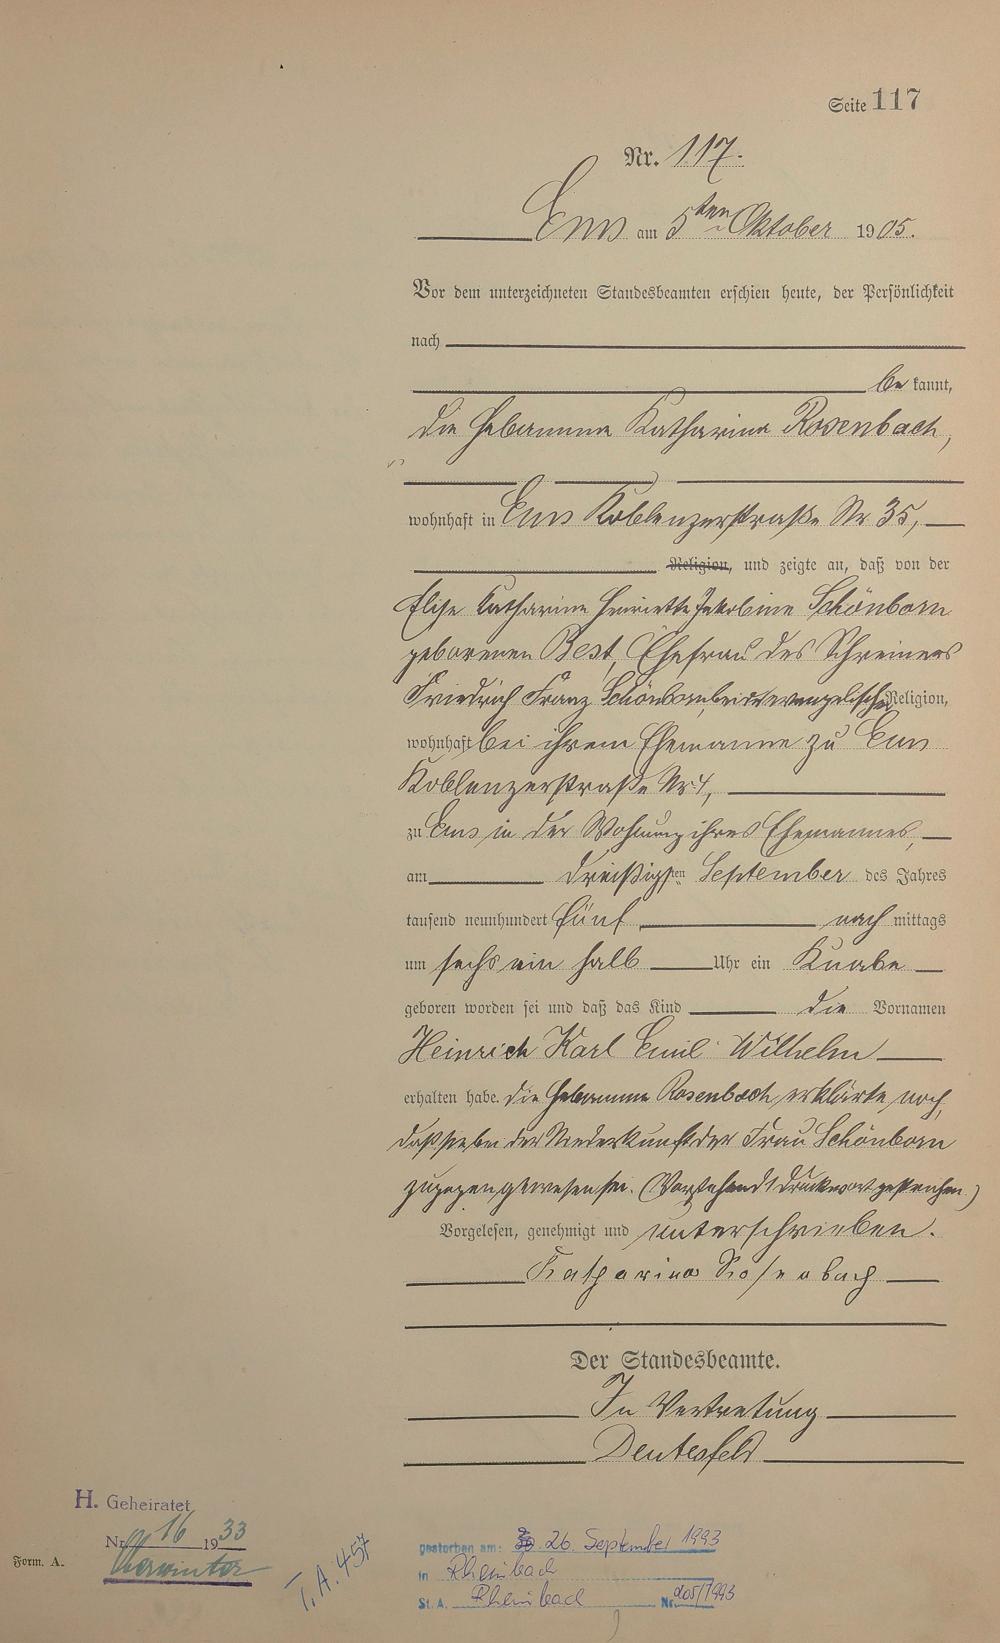 Seite 117
Nr. 117.
Ems am 5ten Oktober 1905.
Vor dem unterzeichneten Standesbeamten erschien heute, der Persönlichkeit
nach
be kannt,
die Hebamme Katharina Rosenbach,
wohnhaft in Ems Koblenzerstraße Nr 35,
Religion, und zeigte an, daß von der
Elise Katharine Henriette Jakobine Schönborn
geborenen Best, Ehefrau des Schreiners
Friedrich Franz Schönborn, beide evangelischer Religion,
wohnhaft bei ihrem Ehemanne zu Ems
Koblenzerstraße Nr 4,
zu Ems in der Wohnung ihres Ehemannes,
am dreißigsten September des Jahres
tausend neunhundert fünf nach mittags
um sechs ein halb Uhr ein Knabe
geboren worden sei und daß das Kind die Vornamen
Heinrich Karl Emil Wilhelm
erhalten habe. Die Hebamme Rosenbach erklärte noch,
daß sie bei der Niederkunft der Frau Schönborn
zugegen gewesen sei. (Vorstehend 1 Druckwort gestrichen.)
Vorgelesen, genehmigt und unterschrieben.
Katharina Rosenbach
Der Standesbeamte.
In Vertretung
H. Geheiratet
Nr. 16 1933
Form. A.
T. A. 457
gestorben am: 26. September 1993
in Rheinbach
St. A. Rheinbach Nr. 205/1993